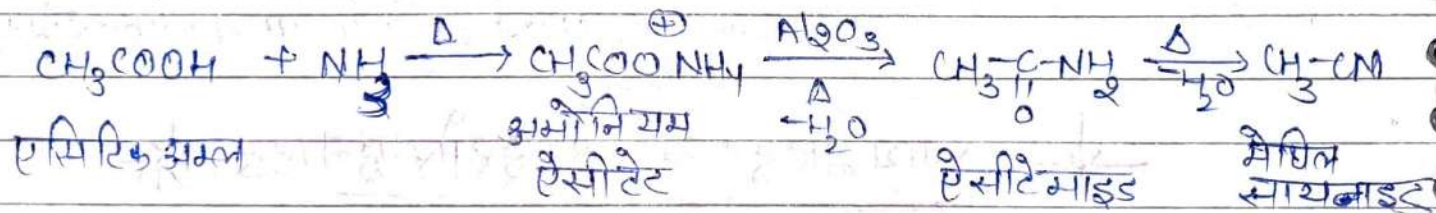 CH₃COOH + NH₃ —Δ→ CH₃COO NH₄⊕ —Al2O₃, Δ, -H₂O→ CH₃-C(=O)-NH₂ —Δ, -H₂O→ CH₃-CN
एसिटिक अम्ल अमोनियम ऐसीटेट ऐसीटेमाइड मेथिल सायनाइट